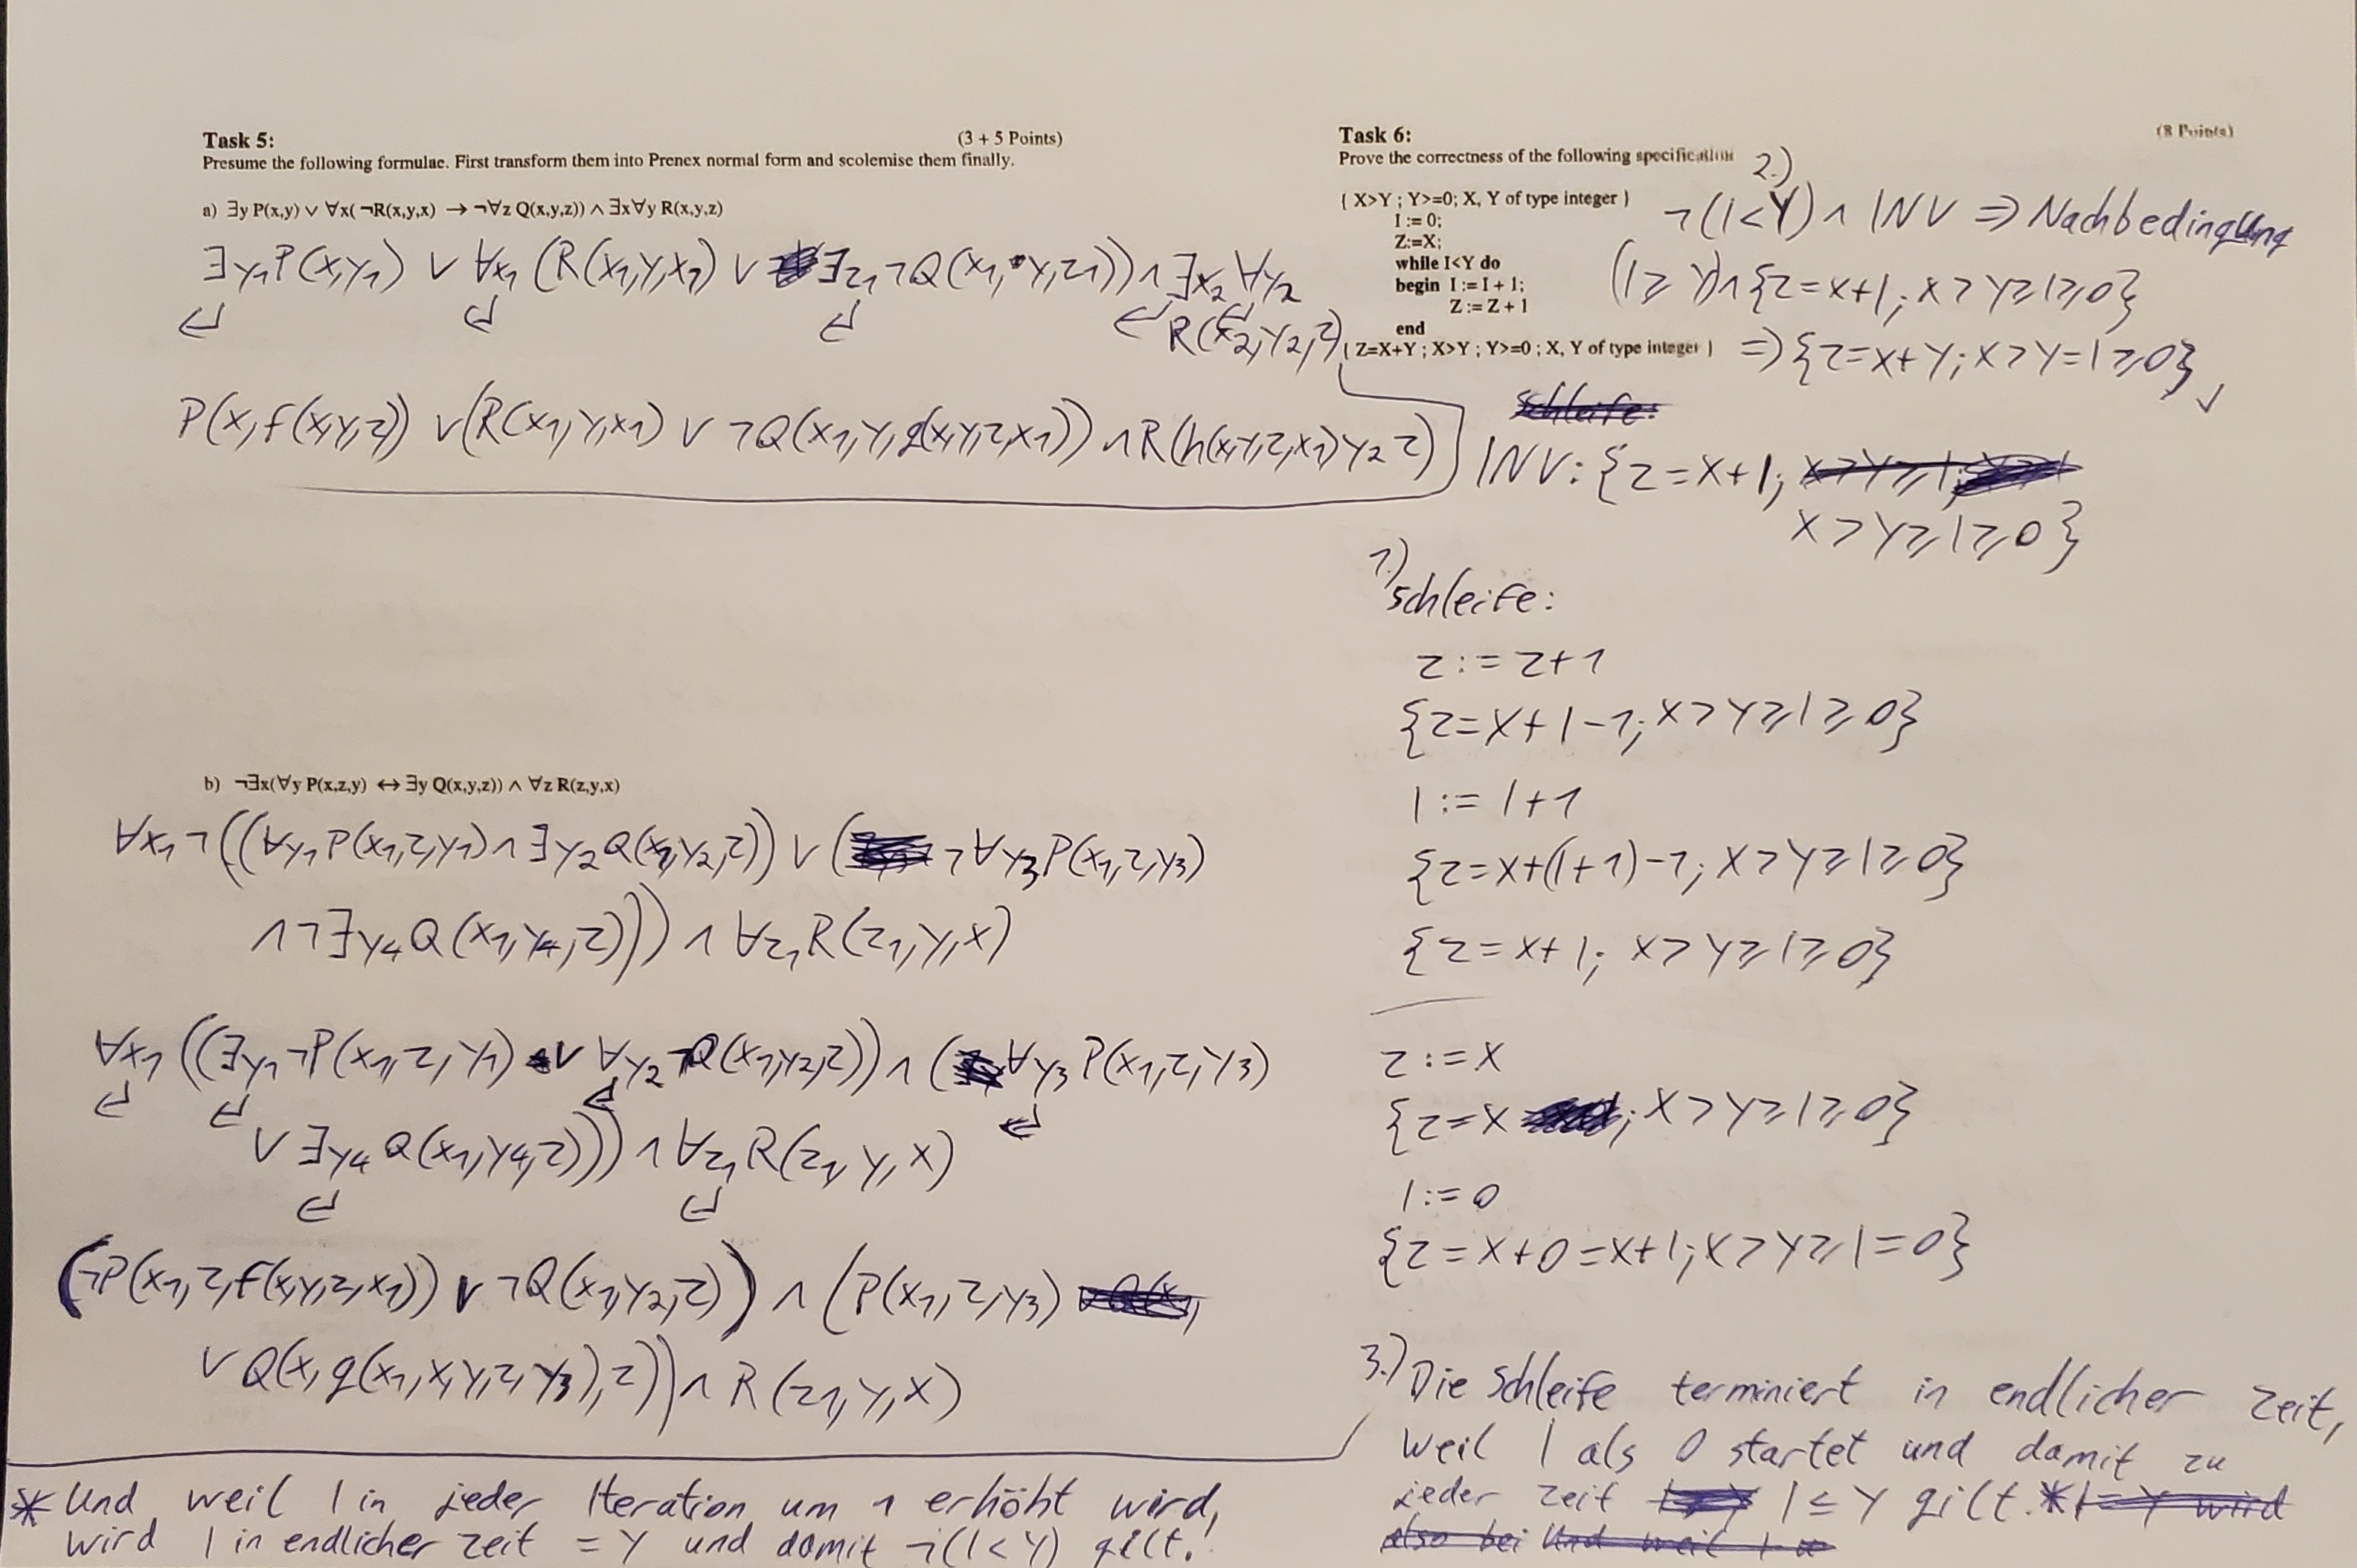 Task 5: (3 + 5 Points)
Presume the following formulae. First transform them into Prenex normal form and scolemise them finally.
a) ∃y P(x,y) ∨ ∀x( ¬R(x,y,x) → ¬∀z Q(x,y,z)) ∧ ∃x∀y R(x,y,z)
∃y₁P(x,y₁) ∨ ∀x₁ (R(x₁,y,x₁) ∨ ∃z₁¬Q(x₁,y,z₁)) ∧ ∃x₂ ∀y₂
R(x₂,y₂,z)
P(x,f(x,y,z)) ∨(R(x₁,y,x₁) ∨ ¬Q(x₁,y,g(x,y,z,x₁)) ∧ R(h(x,y,z,x₁) y₂ z)
b) ¬∃x(∀y P(x,z,y) ↔ ∃y Q(x,y,z)) ∧ ∀z R(z,y,x)
∀x₁¬((∀y₁P(x₁,z,y₁) ∧ ∃y₂Q(x₁,y₂,z)) ∨ (¬∀y₃P(x₁,z,y₃)
∧¬∃y₄Q(x₁,y₄,z))) ∧ ∀z₁R(z₁,y,x)
∀x₁ ((∃y₁¬P(x₁,z,y₁) ∨ ∀y₂¬Q(x₁,y₂,z)) ∧ (∀y₃P(x₁,z,y₃)
∨ ∃y₄Q(x₁,y₄,z))) ∧ ∀z₁R(z₁,y,x)
(¬P(x₁,z,f(x,y,z,x₁)) ∨ ¬Q(x₁,y₂,z)) ∧ (P(x₁,z,y₃)
∨ Q(x,g(x₁,x,y,z,y₃),z)) ∧ R(z₁,y,x)
Task 6: (8 Points)
Prove the correctness of the following specification
{ X>Y ; Y>=0; X, Y of type integer }
I := 0;
Z:=X;
while I<Y do
begin I := I + 1;
Z := Z + 1
end
{ Z=X+Y ; X>Y ; Y>=0 ; X, Y of type integer }
2.)
¬(I<Y) ∧ INV ⇒ Nachbedingung
(I≥Y)∧{Z=X+I; X>Y≥I≥0}
⇒{Z=X+Y; X>Y=I≥0} ✓
Schleife:
INV: {Z=X+I;
X>Y≥I≥0}
1.)
Schleife:
Z:=Z+1
{Z=X+I-1; X>Y≥I≥0}
I:=I+1
{Z=X+(I+1)-1; X>Y≥I≥0}
{Z=X+I; X>Y≥I≥0}
Z:=X
{Z=X; X>Y≥I≥0}
I:=0
{Z=X+0=X+I; X>Y≥I=0}
3.) Die Schleife terminiert in endlicher Zeit,
weil I als 0 startet und damit zu
jeder Zeit I≤Y gilt.* I=Y wird
also bei Und weil I
* Und weil I in jeder Iteration um 1 erhöht wird,
wird I in endlicher Zeit = Y und damit ¬(I<Y) gilt.